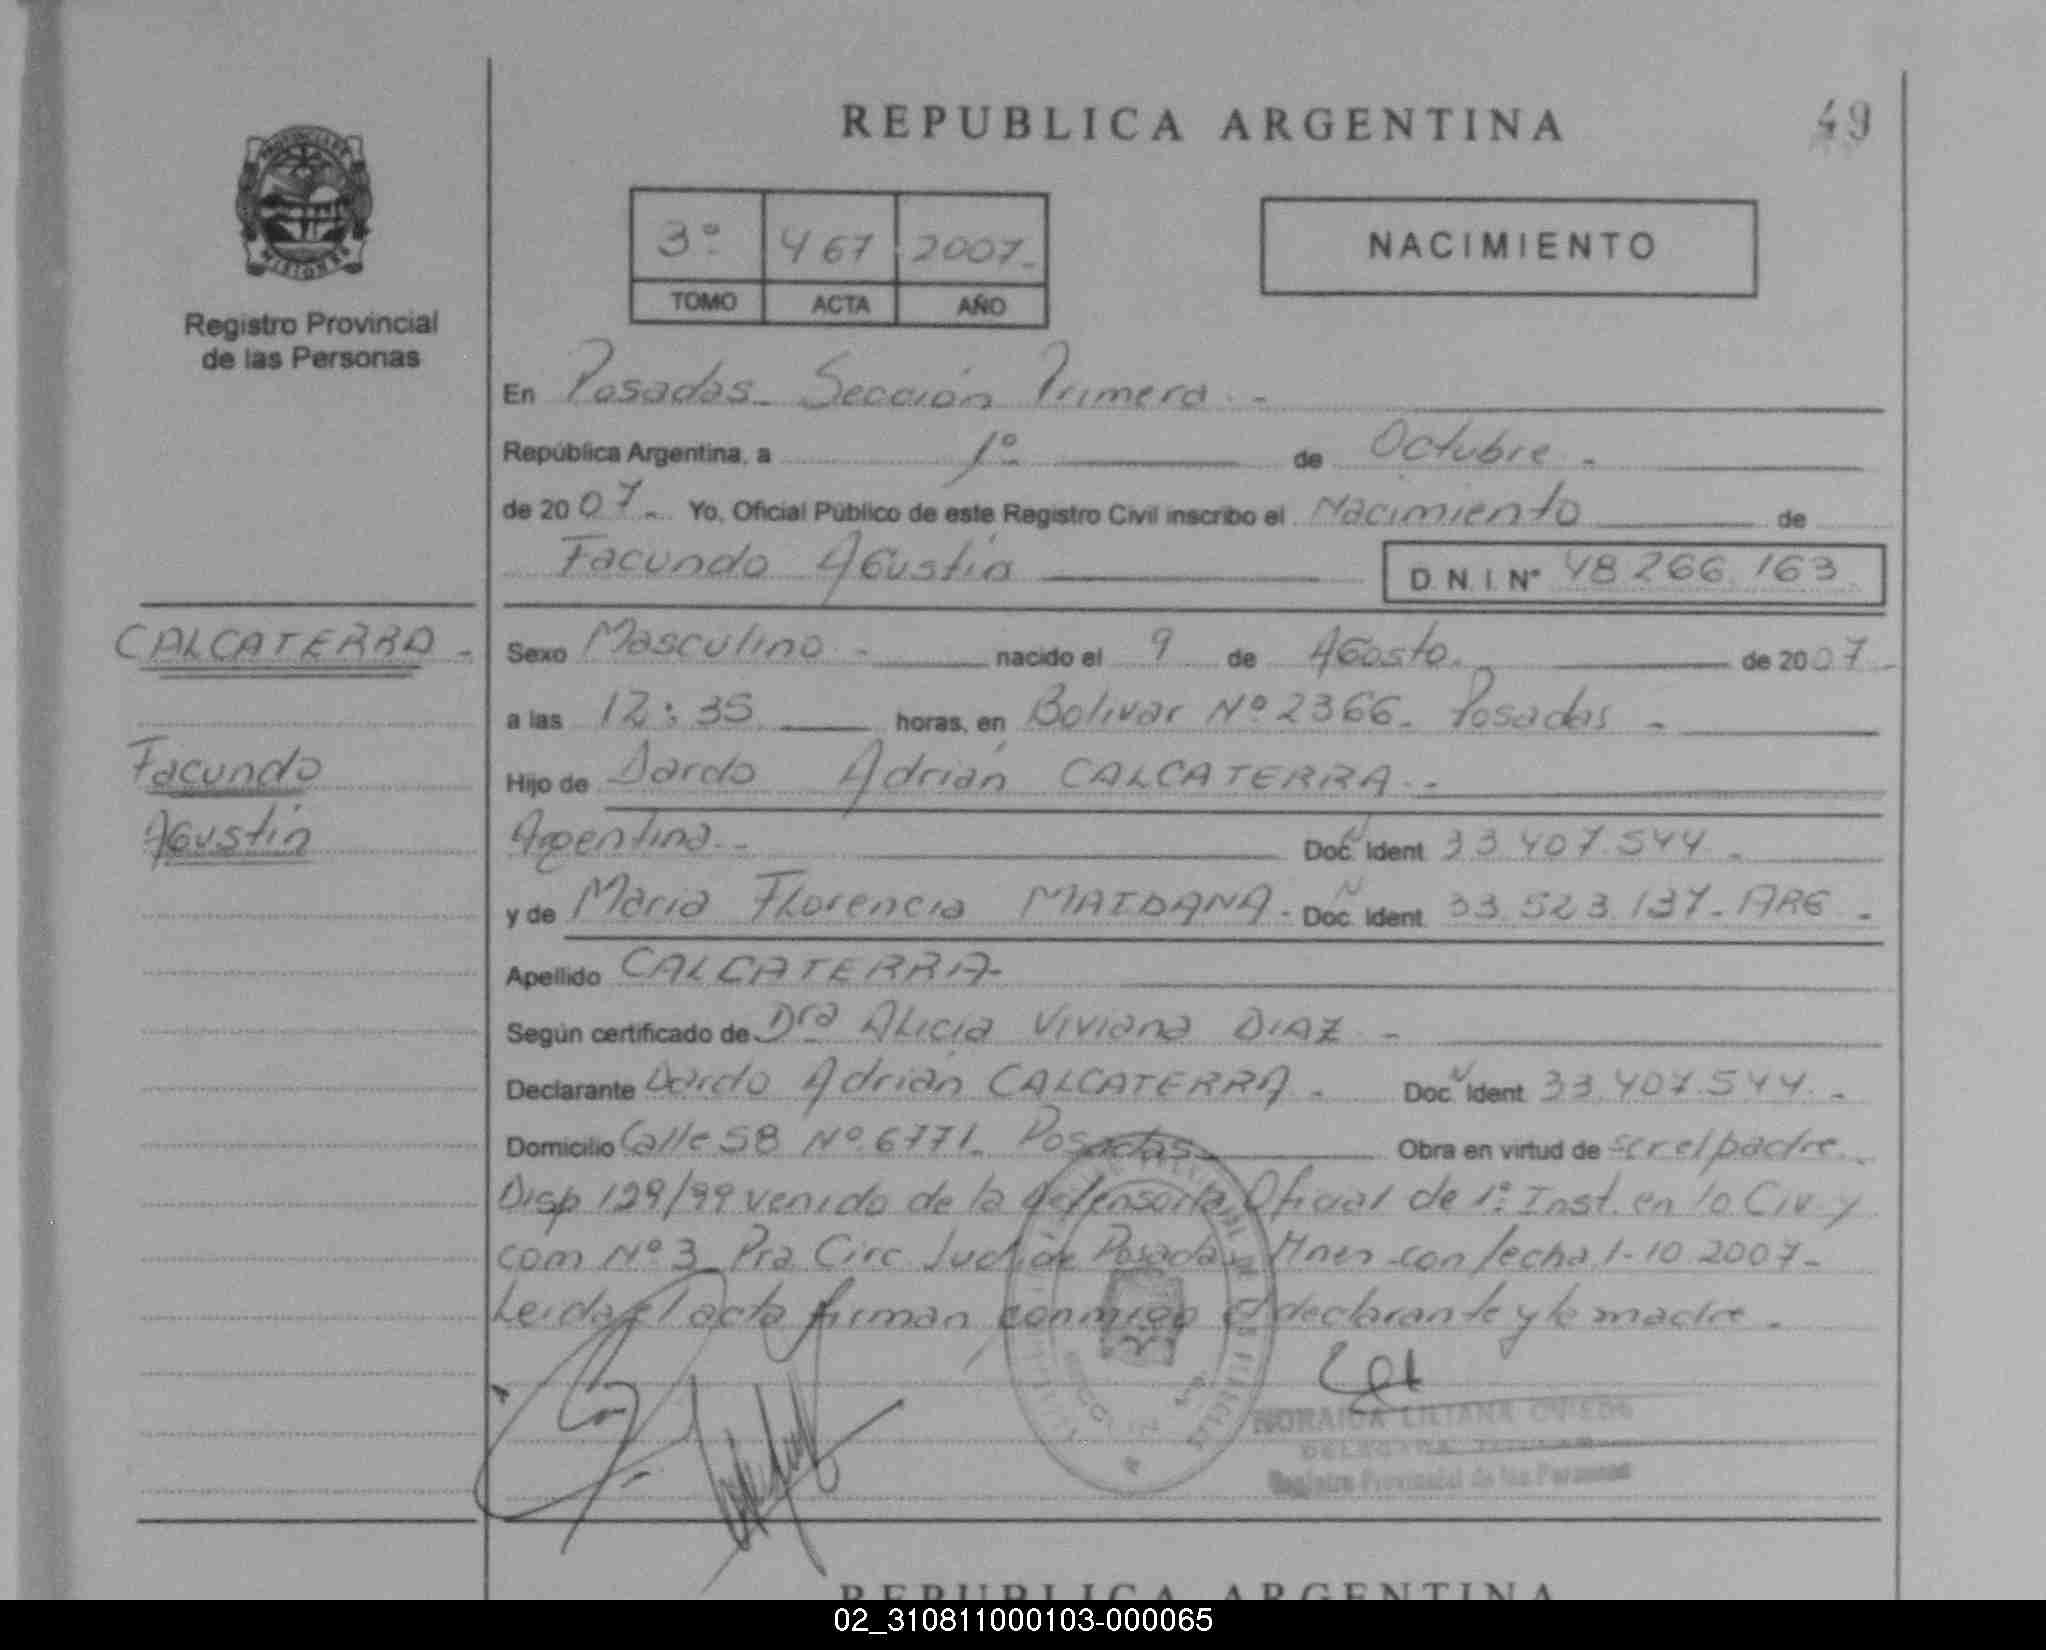 REPUBLICA ARGENTINA
49
PROVINCIA DE
MISIONES
Registro Provincial
de las Personas
3º 467 2007-
TOMO ACTA AÑO
NACIMIENTO
En Posadas - Sección Primera -
República Argentina, a 1º de Octubre -
de 2007- Yo, Oficial Público de este Registro Civil inscribo el Nacimiento de
Facundo Agustín D. N. I. Nº 48 266 163
CALCATERRA -
Facundo
Agustín
Sexo Masculino - nacido el 9 de Agosto de 2007-
a las 12:35 horas, en Bolivar Nº 2366- Posadas -
Hijo de Dardo Adrián CALCATERRA -
Argentina - Doc. Ident 33.407.544 -
y de Maria Florencia MAIDANA - Doc. Ident 33.523.137- ARG -
Apellido CALCATERRA-
Según certificado de Dra ALicia Viviana DIAZ -
Declarante Dardo Adrián CALCATERRA - Doc. Ident 33.407.544 -
Domicilio Calle 58 Nº 6771- Posadas Obra en virtud de ser el padre -
Disp 129/99 venido de la defensoría Oficial de 1º Inst. en lo Civ y
com Nº 3 Pra Circ Jud de Posadas con fecha 1-10 2007-
Leida el acta firman conmigo el declarante y la madre -
NORAIDA LILIANA OVIEDO
DELEGADA TITULAR
Registro Provincial de las Personas
REPUBLICA ARGENTINA
02_310811000103-000065